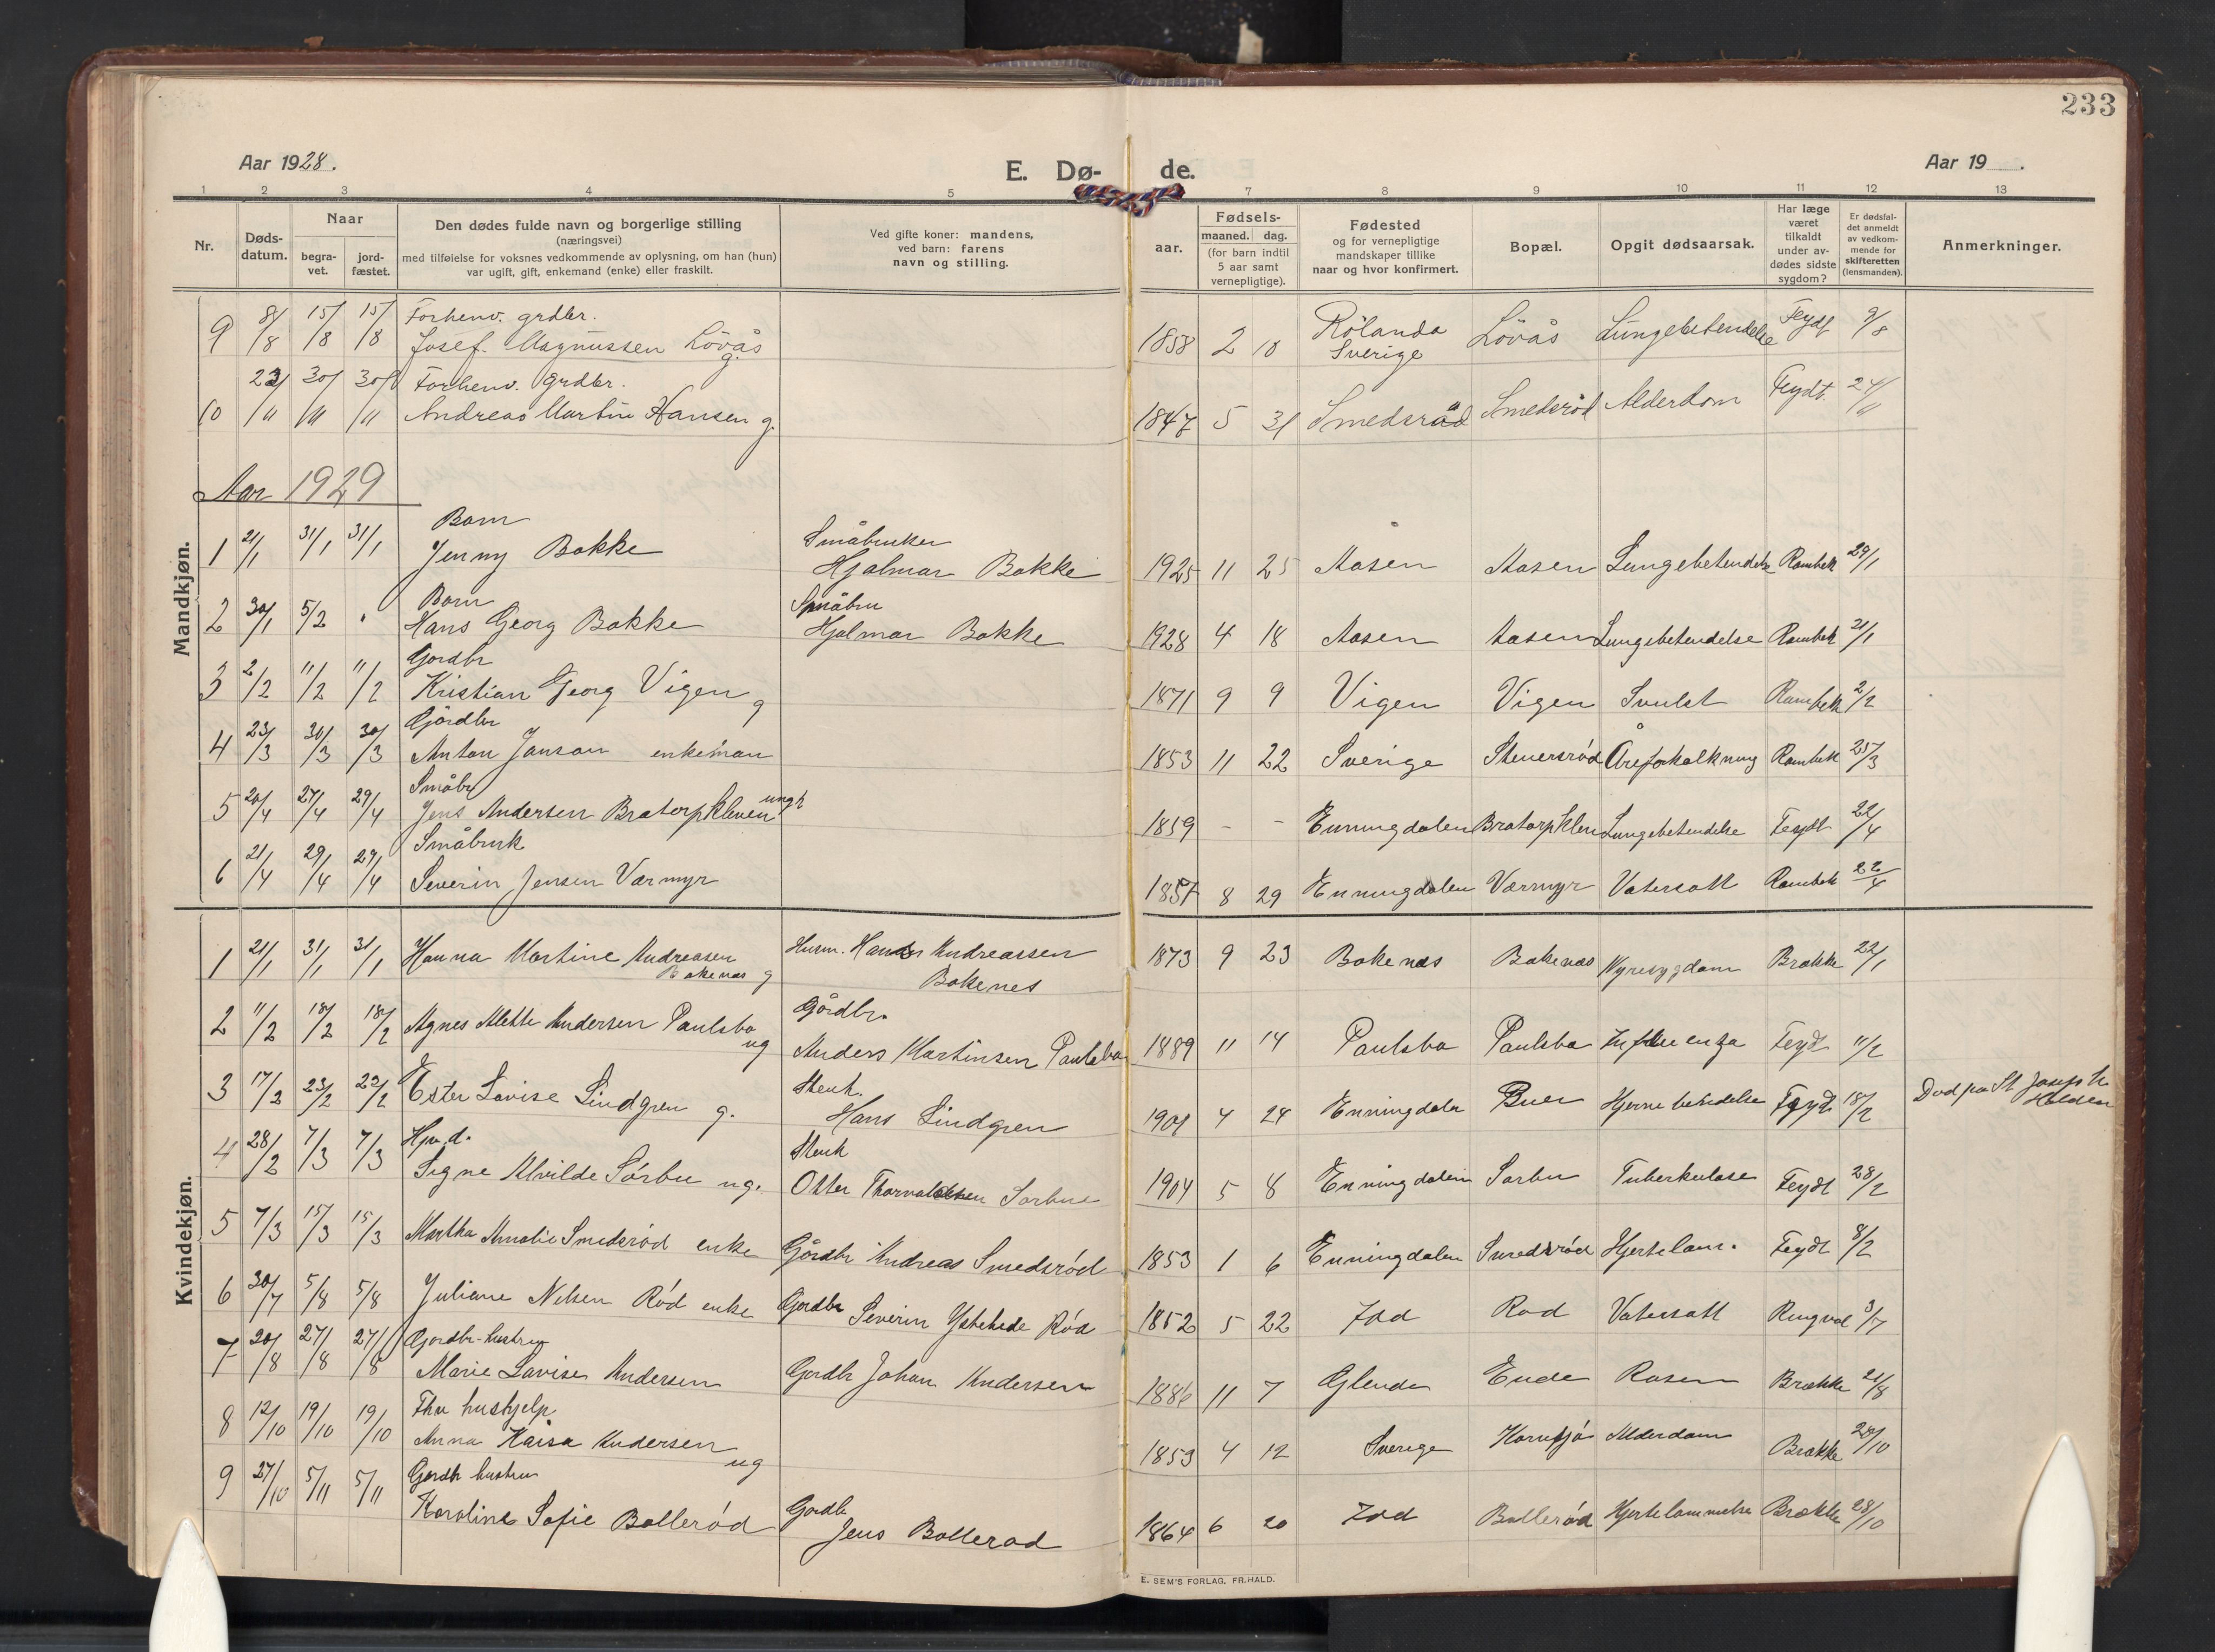 233
Aar 1928.
E. Dø-
de.
Aar 19 .
1 2 3 4 5 7 8 9 10 11 12 13
Nr.
Døds-
datum.
Naar
begra-
vet.
jord-
fæstet.
Den dødes fulde navn og borgerlige stilling
(næringsvei)
med tilføielse for voksnes vedkommende av oplysning, om han (hun)
var ugift, gift, enkemand (enke) eller fraskilt.
Ved gifte koner: mandens,
ved barn: farens
navn og stilling.
aar.
Fødsels-
maaned. dag.
(for barn indtil
5 aar samt
vernepligtige).
Fødested
og for vernepligtige
mandskaper tillike
naar og hvor konfirmert.
Bopæl.
Opgit dødsaarsak.
Har læge
været
tilkaldt
under av-
dødes sidste
sygdom?
Er dødsfal-
det anmeldt
av vedkom-
mende for
skifteretten
(lensmanden).
Anmerkninger.
Mandkjøn.
Forhenv. grdbr.
9 8/8 15/8 15/8 Josef Magnussen Lövås g. 1858 2 10 Rölanda Sverige Lövås Lungebetendelse Feydt 9/8
Forhenv. grdbr.
10 /11 30/11 30/11 Andreas Martin Hansen g. 1847 5 31 Smedsröd Smedsröd Alderdom Feydt. 24/11
Aar 1929
Barn Småbruker
1 21/1 31/1 31/1 Jenny Bakke Hjalmar Bakke 1925 11 25 Aasen Aasen Lungebetendelse Rambek 29/1
Barn Småbru
2 30/1 5/2 " Hans Georg Bakke Hjalmar Bakke 1928 4 18 Aasen Aasen Lungebetendelse Rambek 21/1
Gordbr
3 2/2 11/2 11/2 Kristian Georg Vigen g 1871 9 9 Vigen Vigen Svulst Rambek 2/2
Gårdbr
4 23/3 30/3 30/3 Anton Janson enkeman 1853 11 22 Sverige Stenersrød Åreforkalkning Rambek 25/3
Småbr
5 20/4 27/4 29/4 Jens Andersen Bratorpkleven ungk 1859 - - Enningdalen Bratorpklev Lungebetendelse Feydt 22/4
Småbruk
6 21/4 29/4 29/4 Severin Jensen Varmyr 1857 8 29 Enningdalen Værmyr Vatersott Rambek 22/4
Kvindekjøn.
1 21/1 31/1 31/1 Hanna Martine Andreasen Husm. Hans Andreassen 1873 9 23 Bokenæs Bakenæs Nyresygdom Brække 22/1
Bokenæs g Bokenes
Gårdbr.
2 11/2 18/2 18/2 Agnes Alette Andersen Paulsbo ug Anders Martinsen Paulsbo 1889 11 14 Paulsbo Paulsbo Influenza Feydt 11/2
Stenh.
3 17/2 23/2 22/2 Ester Lovise Lindgren g. Hans Lindgren 1901 4 24 Enningdalen Buer Hjernebetendelse Feydt 18/2 Død på St Josefs h. Halden
Hpv. d. Stenh
4 28/2 7/3 7/3 Signe Alvilde Sørbu ug. Otter Thorvaldsen Sørbue 1904 5 8 Enningdalen Sørbu Tuberkulose Feydt 28/2
5 7/3 15/3 15/3 Martha Amalie Smedsrød enke Gårdbr Andreas Smedsrød 1853 1 6 Enningdalen Smedsrød Hjertelam. Feydt 8/2
6 30/7 5/8 5/8 Juliane Nelsen Rød enke Gordbr Severin Ystehede Rød 1852 5 22 Idd Rød Vatersott Ringvol 3/7
Gordbr-hustru
7 20/8 27/8 27/8 Marie Lovise Andersen Gordbr Johan Andersen 1886 11 7 Glende Ende Rosen Brække 21/8
Fhv hushjelp
8 12/10 19/10 19/10 Anna Kaisa Andersen ug 1853 4 12 Sverige Kornsjø Alderdom Brække 28/10
Gordbr hustru Gordbr
9 27/10 5/11 5/11 Karoline Sofie Bollerød Jens Bollerød 1864 6 20 Idd Bollerød Hjertelammelse Brække 28/10
E. SEM'S FORLAG, FR.HALD.